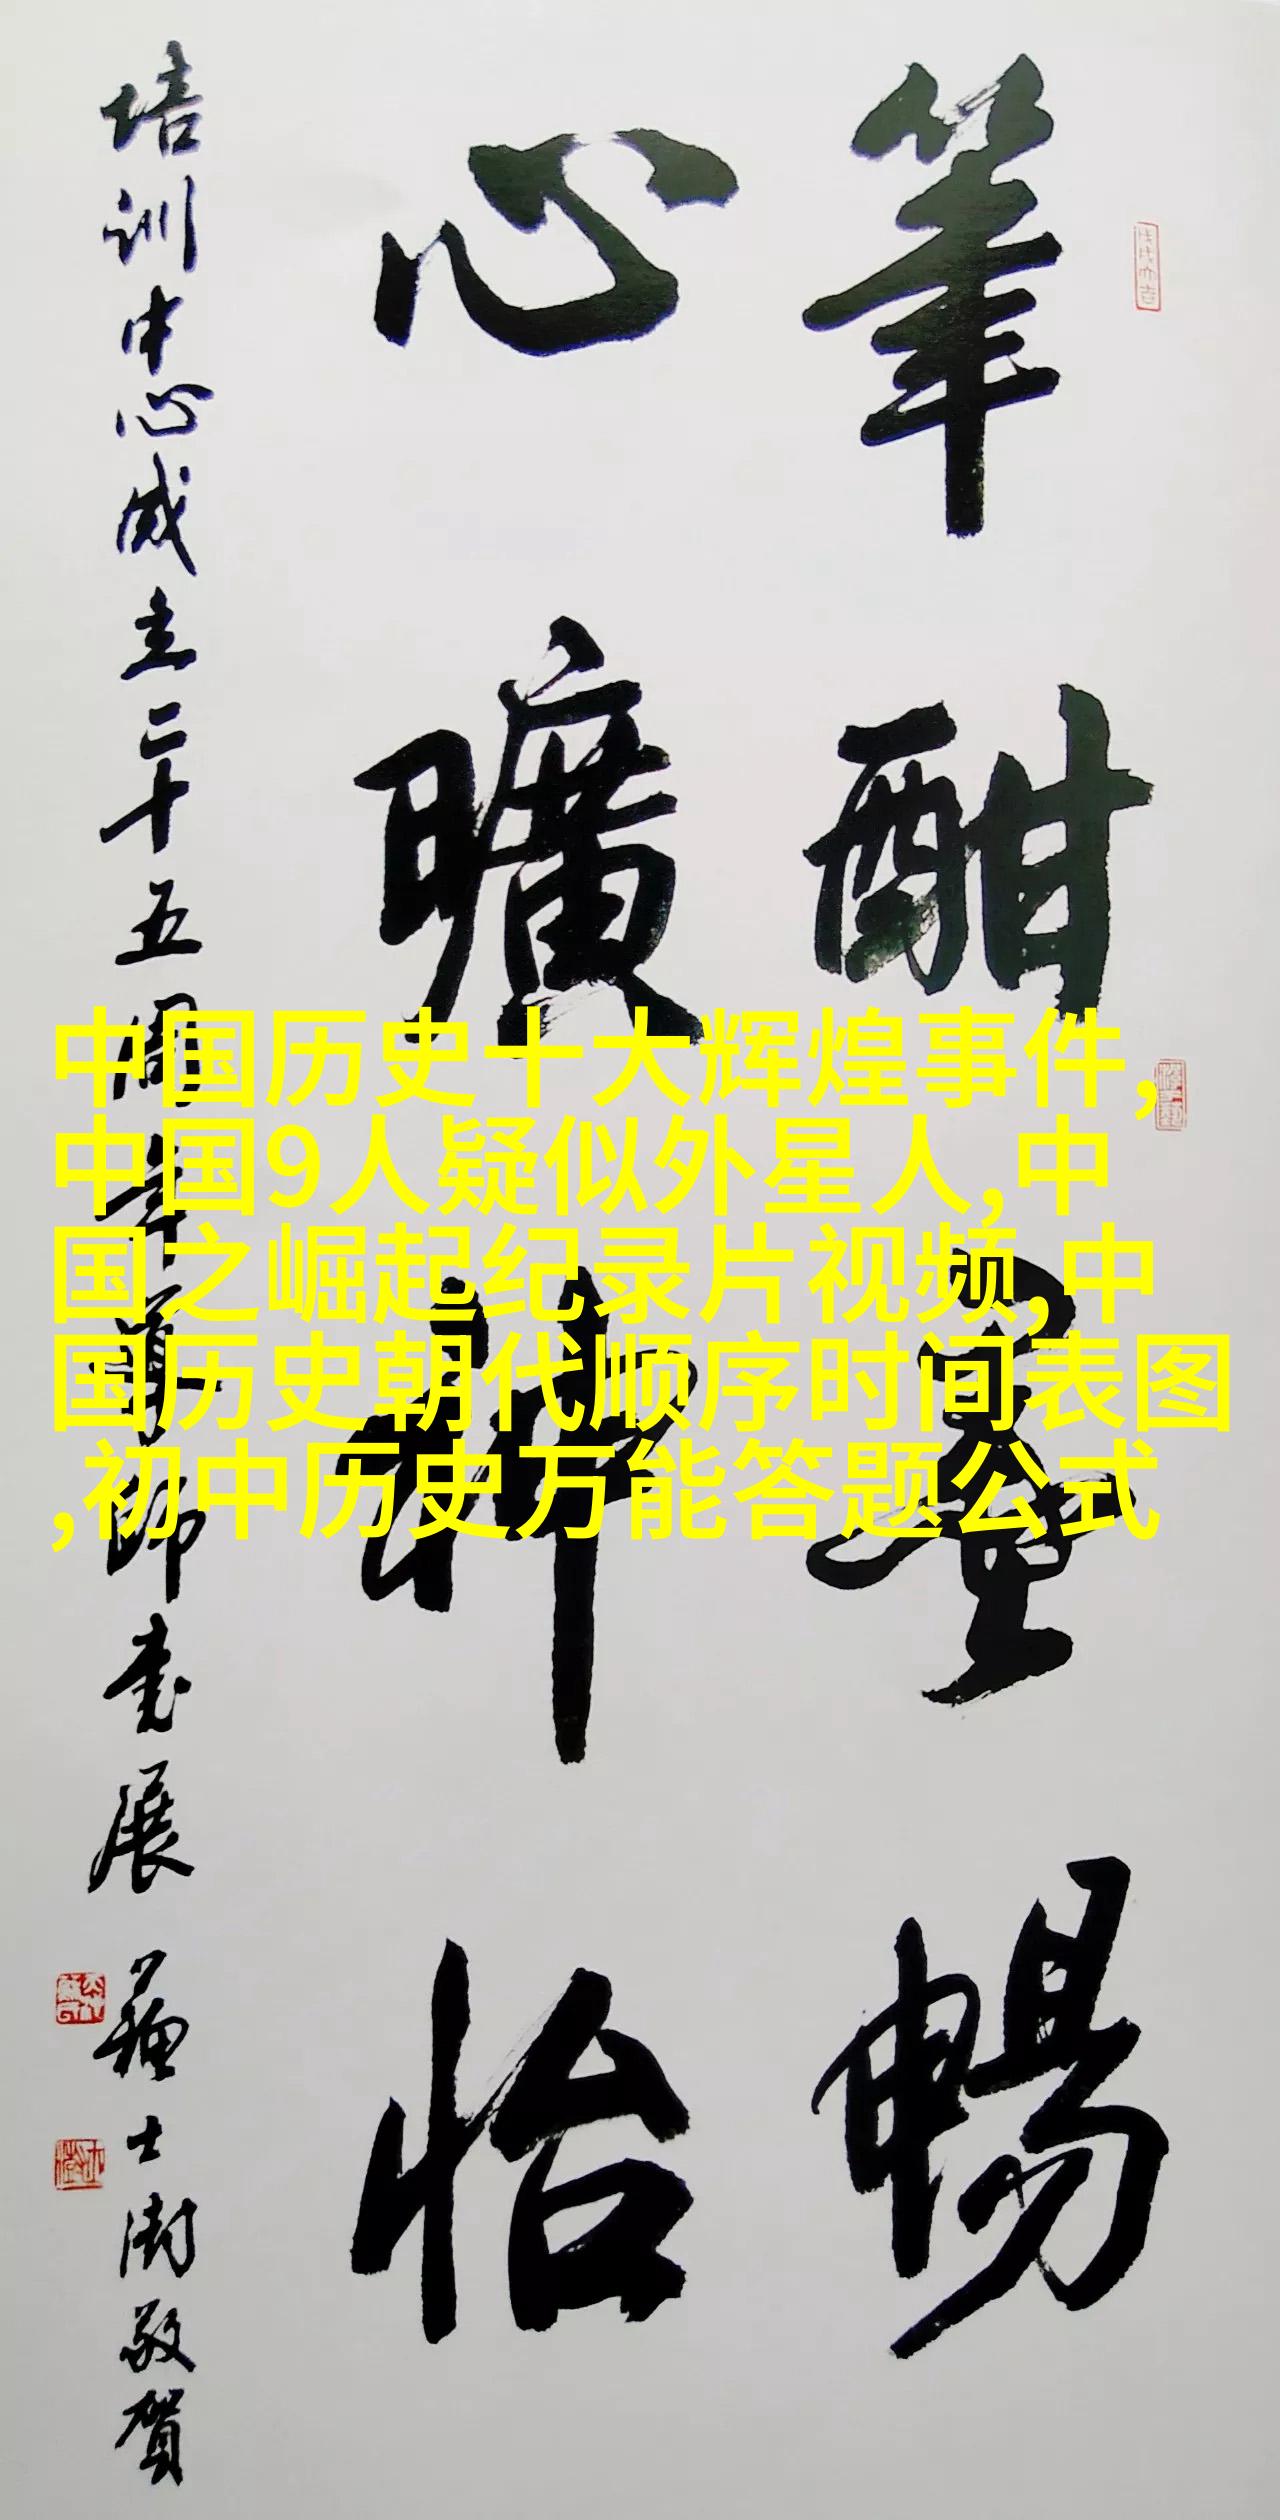 筆酣墨暢
心曠神怡
培訓中心成立二十五周年導師書展
士澍敬賀
中国历史十大辉煌事件,
中国9人疑似外星人,中
国之崛起纪录片视频,中
国历史朝代顺序时间表图
,初中历史万能答题公式